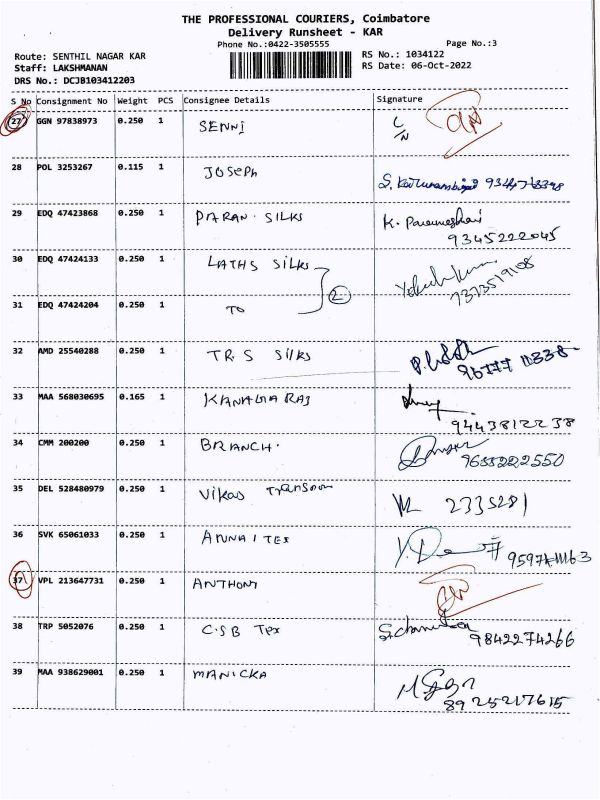 THE PROFESSIONAL COURIERS, Coimbatore
Delivery Runsheet - KAR
Phone No.:0422-3505555 Page No.:3
Route: SENTHIL NAGAR KAR RS No.: 1034122
Staff: LAKSHMANAN RS Date: 06-Oct-2022
DRS No.: DCJB103412203
S No Consignment No Weight PCS Consignee Details Signature
27 GGN 97838973 0.250 1 SENNI L/N
28 POL 3253267 0.115 1 JOSEPH
29 EDQ 47423868 0.250 1 PARAN. SILKS K. Parameshari
9345222045
30 EDQ 47424133 0.250 1 LATHS SILKS
7373519108
2
31 EDQ 47424204 0.250 1 TO
32 AMD 25540288 0.250 1 TR.S SILKS
33 MAA 568030695 0.165 1 KANAGARAJ
9443812238
34 CMM 200200 0.250 1 BRANCH.
9655222550
35 DEL 528480979 0.250 1 VIKAS 2335281
36 SVK 65061033 0.250 1 ANNAI TEX
37 VPL 213647731 0.250 1 ANTHONY
38 TRP 5052076 0.250 1 C.S.B Tex
9842274266
39 MAA 938629001 0.250 1 MANICKA
8925217615